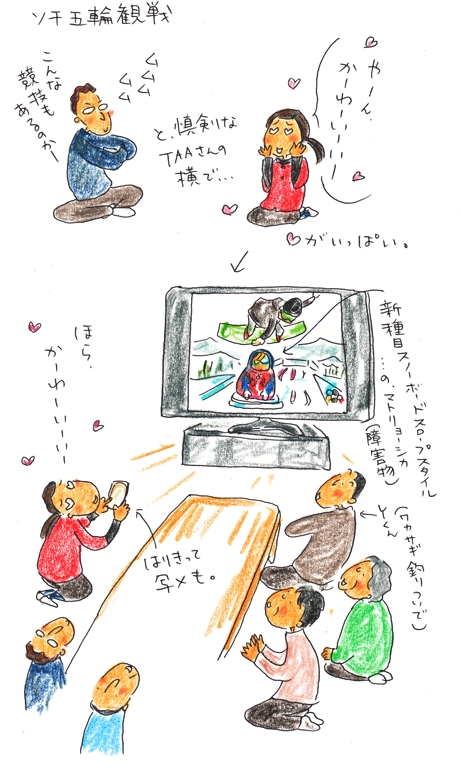 ソチ五輪観戦
こんな
競技も
あるのかー
と、慎剣な
TAAさんの
横で…
やーん、
かーわいーいー
♡がいっぱい。
新種目スノーボードスロープスタイル
…の、マトリョーシカ
(障害物)
ほら、
かーわいーいー
はりきって
写メも。
(ワカサギ釣りついで)
Yくん